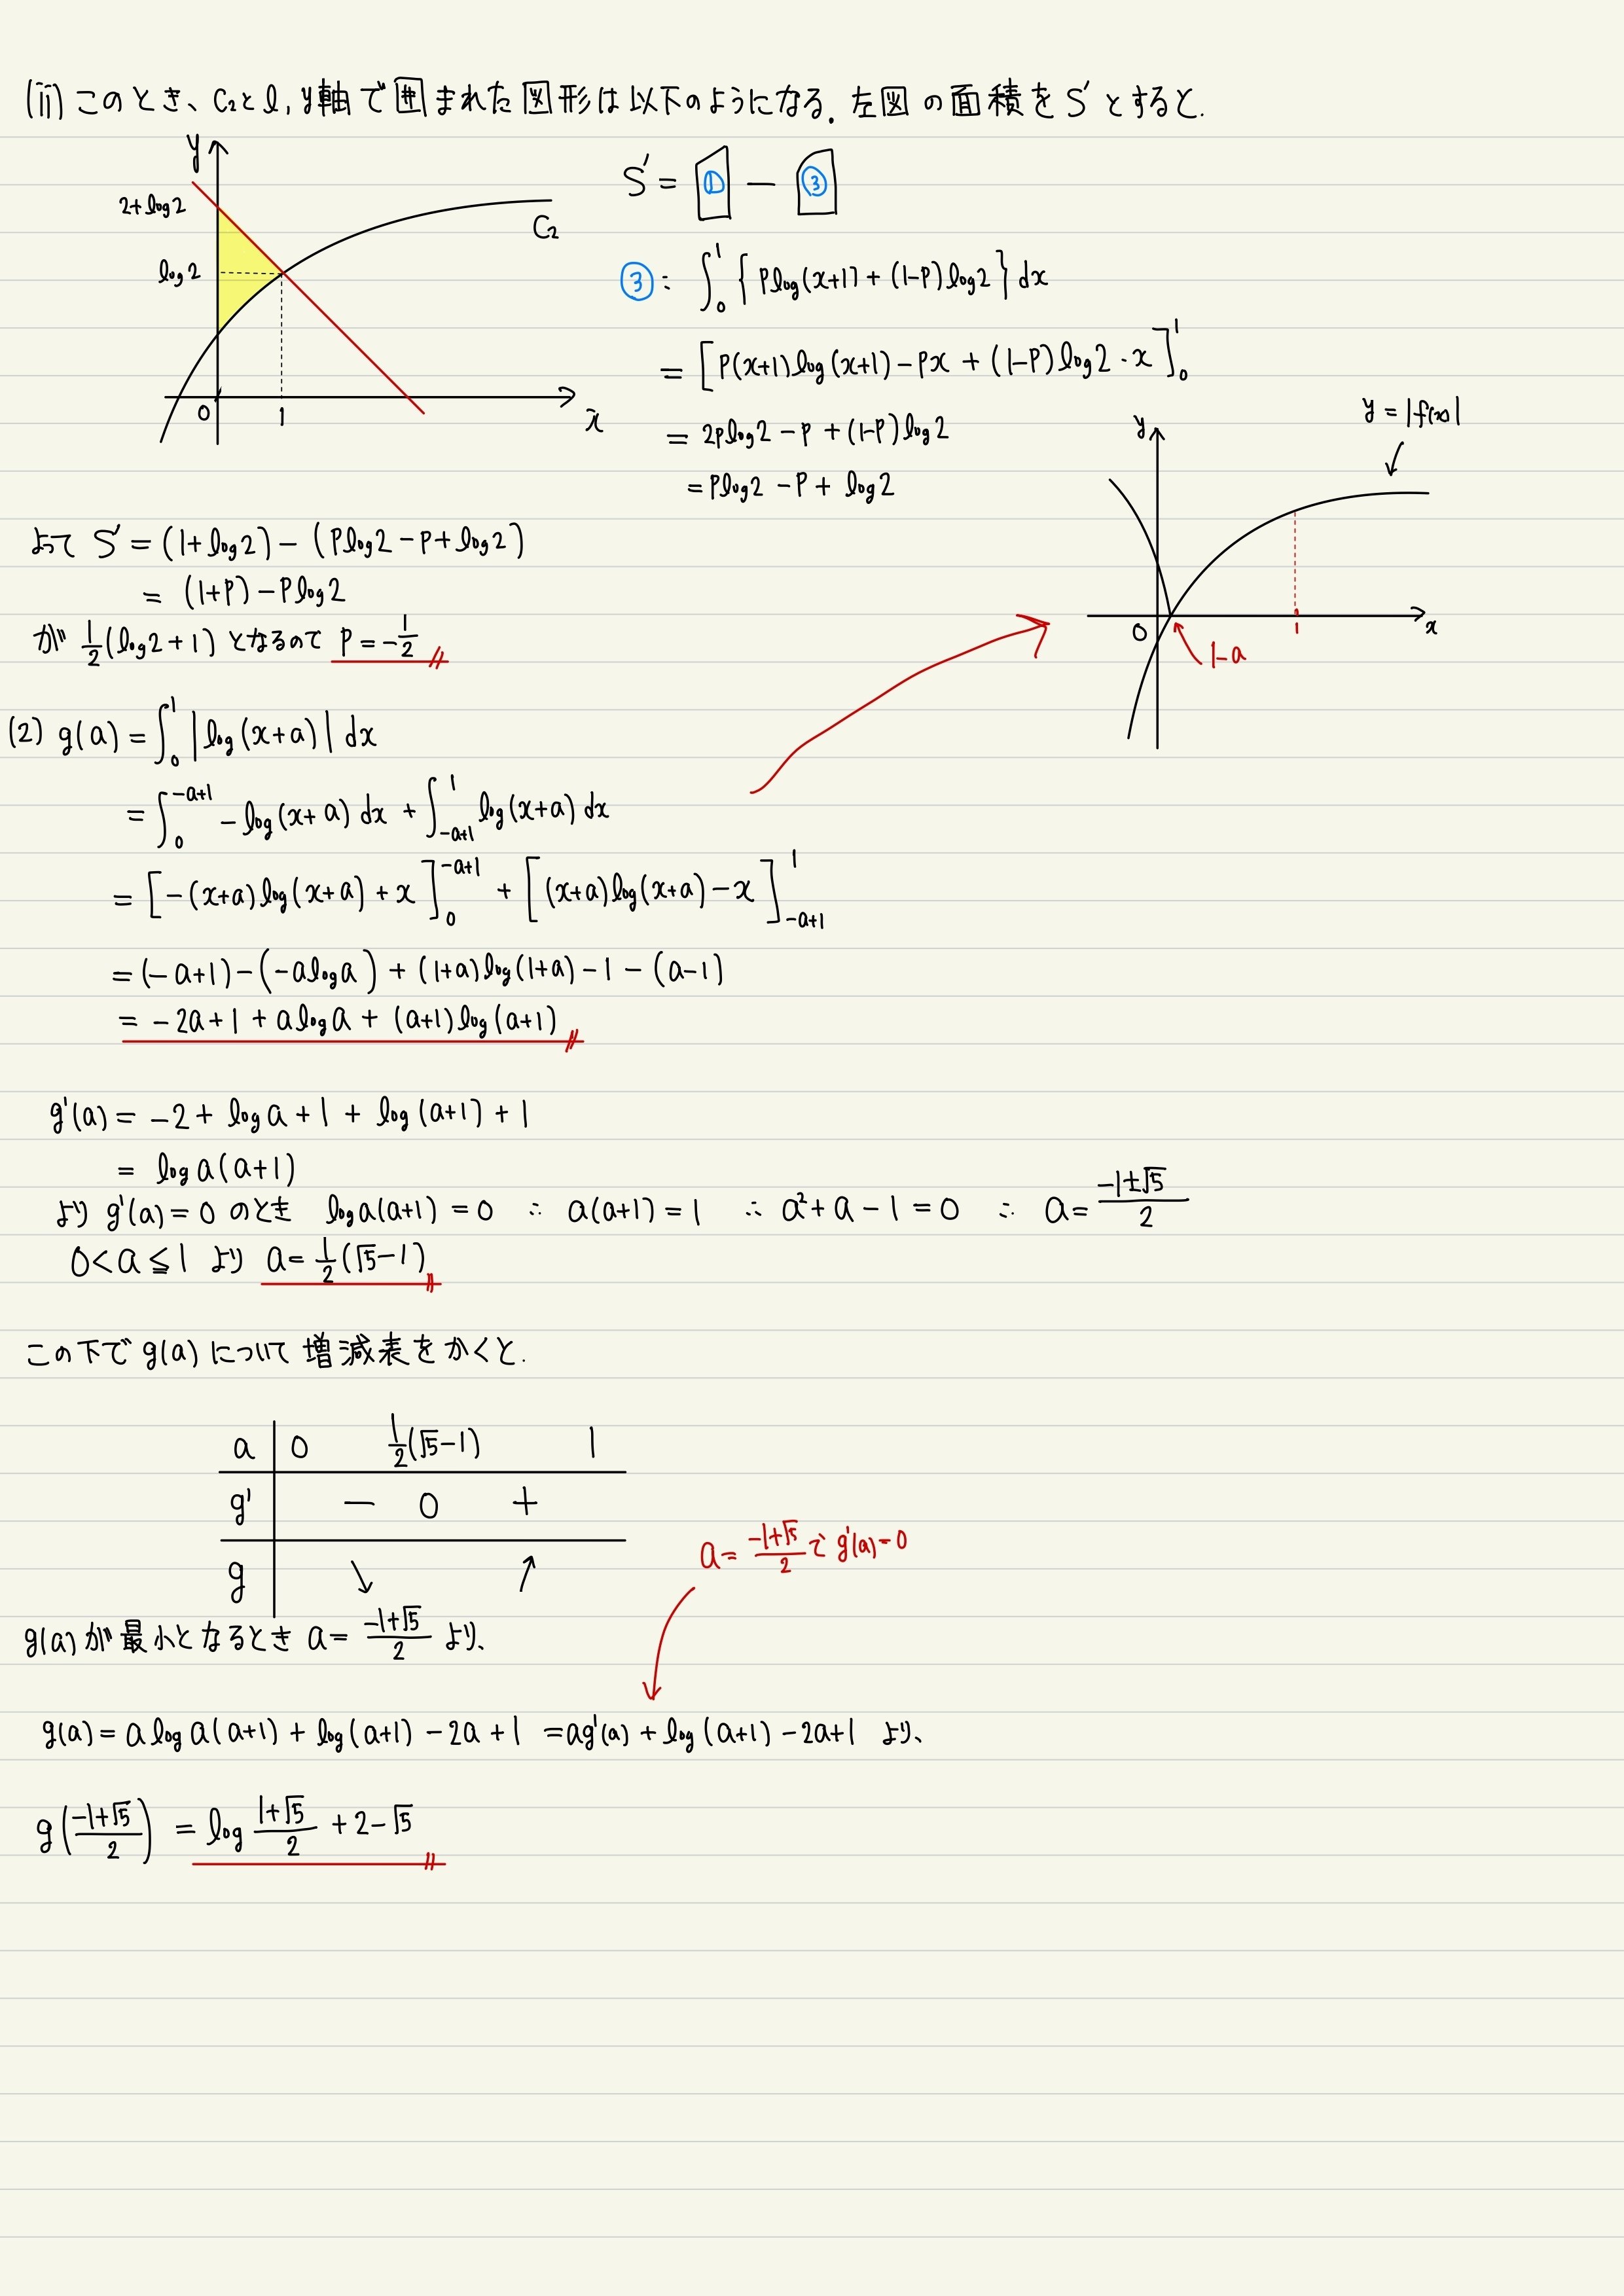 (ii) このとき、C₂とl, y軸で囲まれた図形は以下のようになる. 左図の面積をS'とすると.
y
2+log2
log2
C₂
0
1
x
S' = ① − ③
③ : ∫₀¹ { Plog(x+1) + (1-P)log2 } dx
= [ P(x+1)log(x+1) − Px + (1-P)log2・x ]₀¹
= 2Plog2 − P + (1-P)log2
= Plog2 − P + log2
y
y = |f(x)|
0
1
x
1-a
よって S' = (1+log2) − (Plog2 − P + log2)
= (1+P) − Plog2
が 1/2(log2+1) となるので P = −1/2
(2) g(a) = ∫₀¹ |log(x+a)| dx
= ∫₀^{-a+1} −log(x+a) dx + ∫_{-a+1}^{1} log(x+a) dx
= [ −(x+a)log(x+a) + x ]₀^{-a+1} + [ (x+a)log(x+a) − x ]_{-a+1}^{1}
= (−a+1) − (−aloga) + (1+a)log(1+a) − 1 − (a−1)
= −2a+1 + aloga + (a+1)log(a+1)
g'(a) = −2 + loga + 1 + log(a+1) + 1
= loga(a+1)
より g'(a) = 0 のとき loga(a+1) = 0 ∴ a(a+1) = 1 ∴ a²+a−1 = 0 ∴ a = (−1±√5)/2
0 < a ≦ 1 より a = 1/2(√5−1)
この下で g(a) について増減表をかくと.
a 0 1/2(√5−1) 1
g' − 0 +
g ↘ ↗
a = (−1+√5)/2 で g'(a) = 0
g(a)が最小となるとき a = (−1+√5)/2 より、
g(a) = aloga(a+1) + log(a+1) − 2a + 1 = ag'(a) + log(a+1) − 2a+1 より、
g((−1+√5)/2) = log (1+√5)/2 + 2−√5